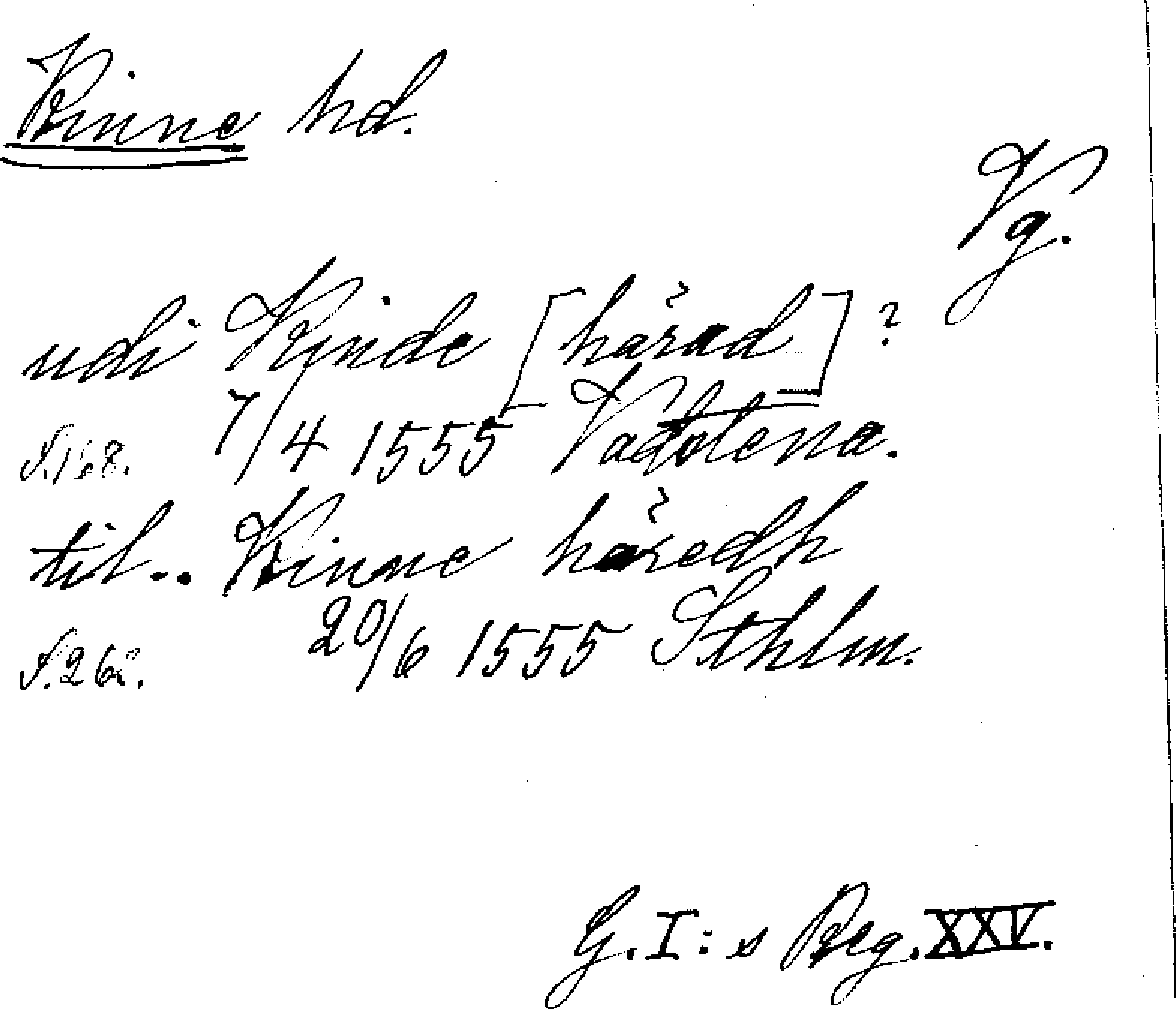 Kinne hd.
Vg.
udi Kinde [härad]?
S. 168. 7/4 1555 Vadstena.
til.. Kinne häredh
20/6 1555 Sthlm.
G. I:s Reg. XXV.